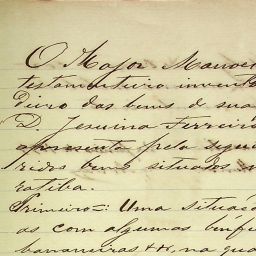 O Major Manoel
testamenteiro invent
dieiro dos bens de sua
D. Jesuina Ferreira
apresenta pela
ridos bens situados
ratiba.
Primeiro=: Uma situaçã
as com algumas benfei
bananeiras &&, na qua